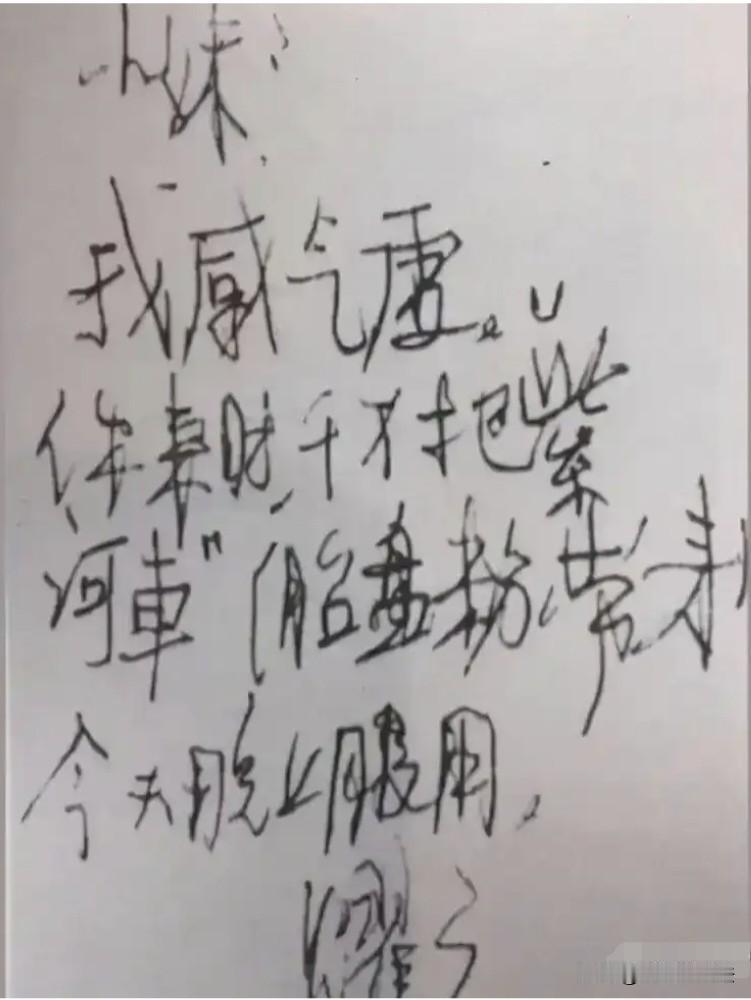 小妹:
我感气虚。
你来时,千万才把“紫
河車”(胎盘粉)带来
今天晚上服用。